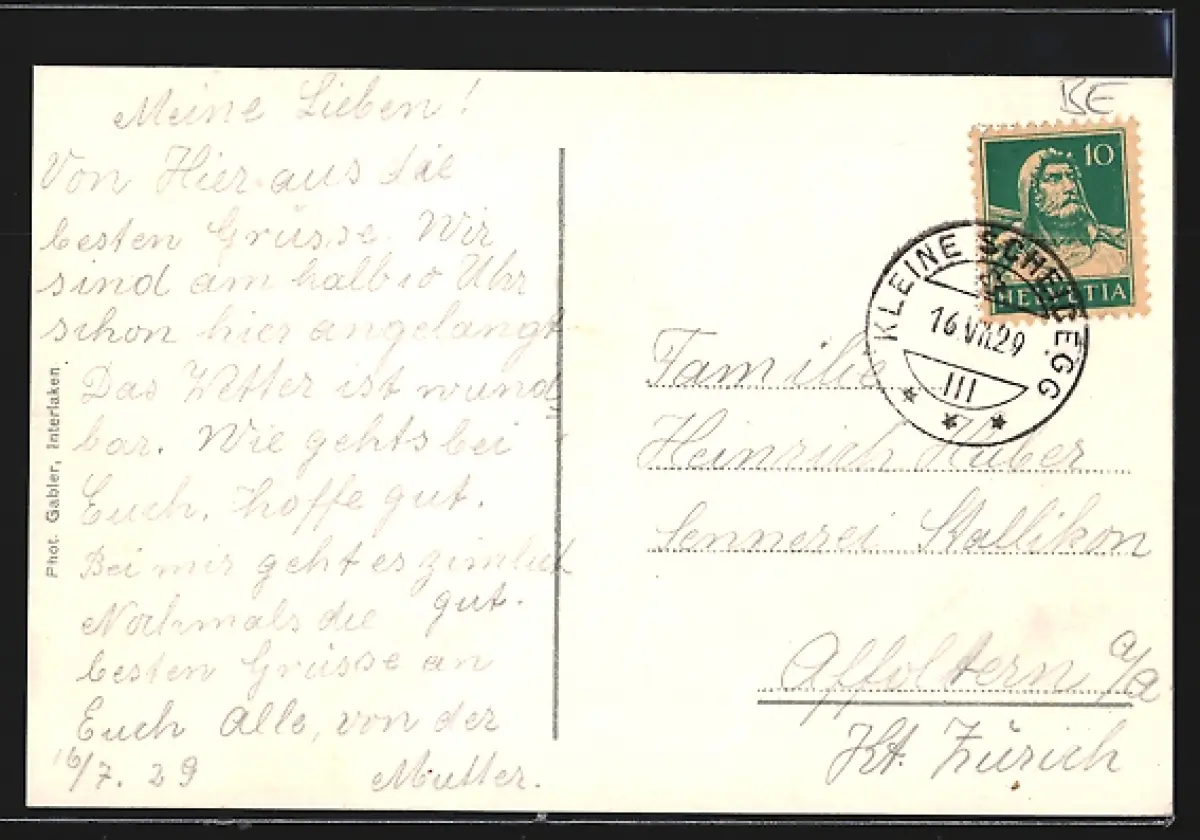 Meine Lieben!
Von Hier aus die
besten Grüsse. Wir
sind am halb 10 Uhr
schon hier angelangt
Das Wetter ist wund
bar. Wie gehts bei
Euch, hoffe gut.
Bei mir geht es zimlich
gut.
Nochmals die
besten Grüsse an
Euch Alle, von der
16/7. 29 Mutter.
Phot. Gabler, Interlaken.
BE
10
HELVETIA
KLEINE SCHEIDEGG
16.VII.29
III
Familie
Heinrich Huber
Sennerei Stallikon
Affoltern a/A
Kt. Zürich